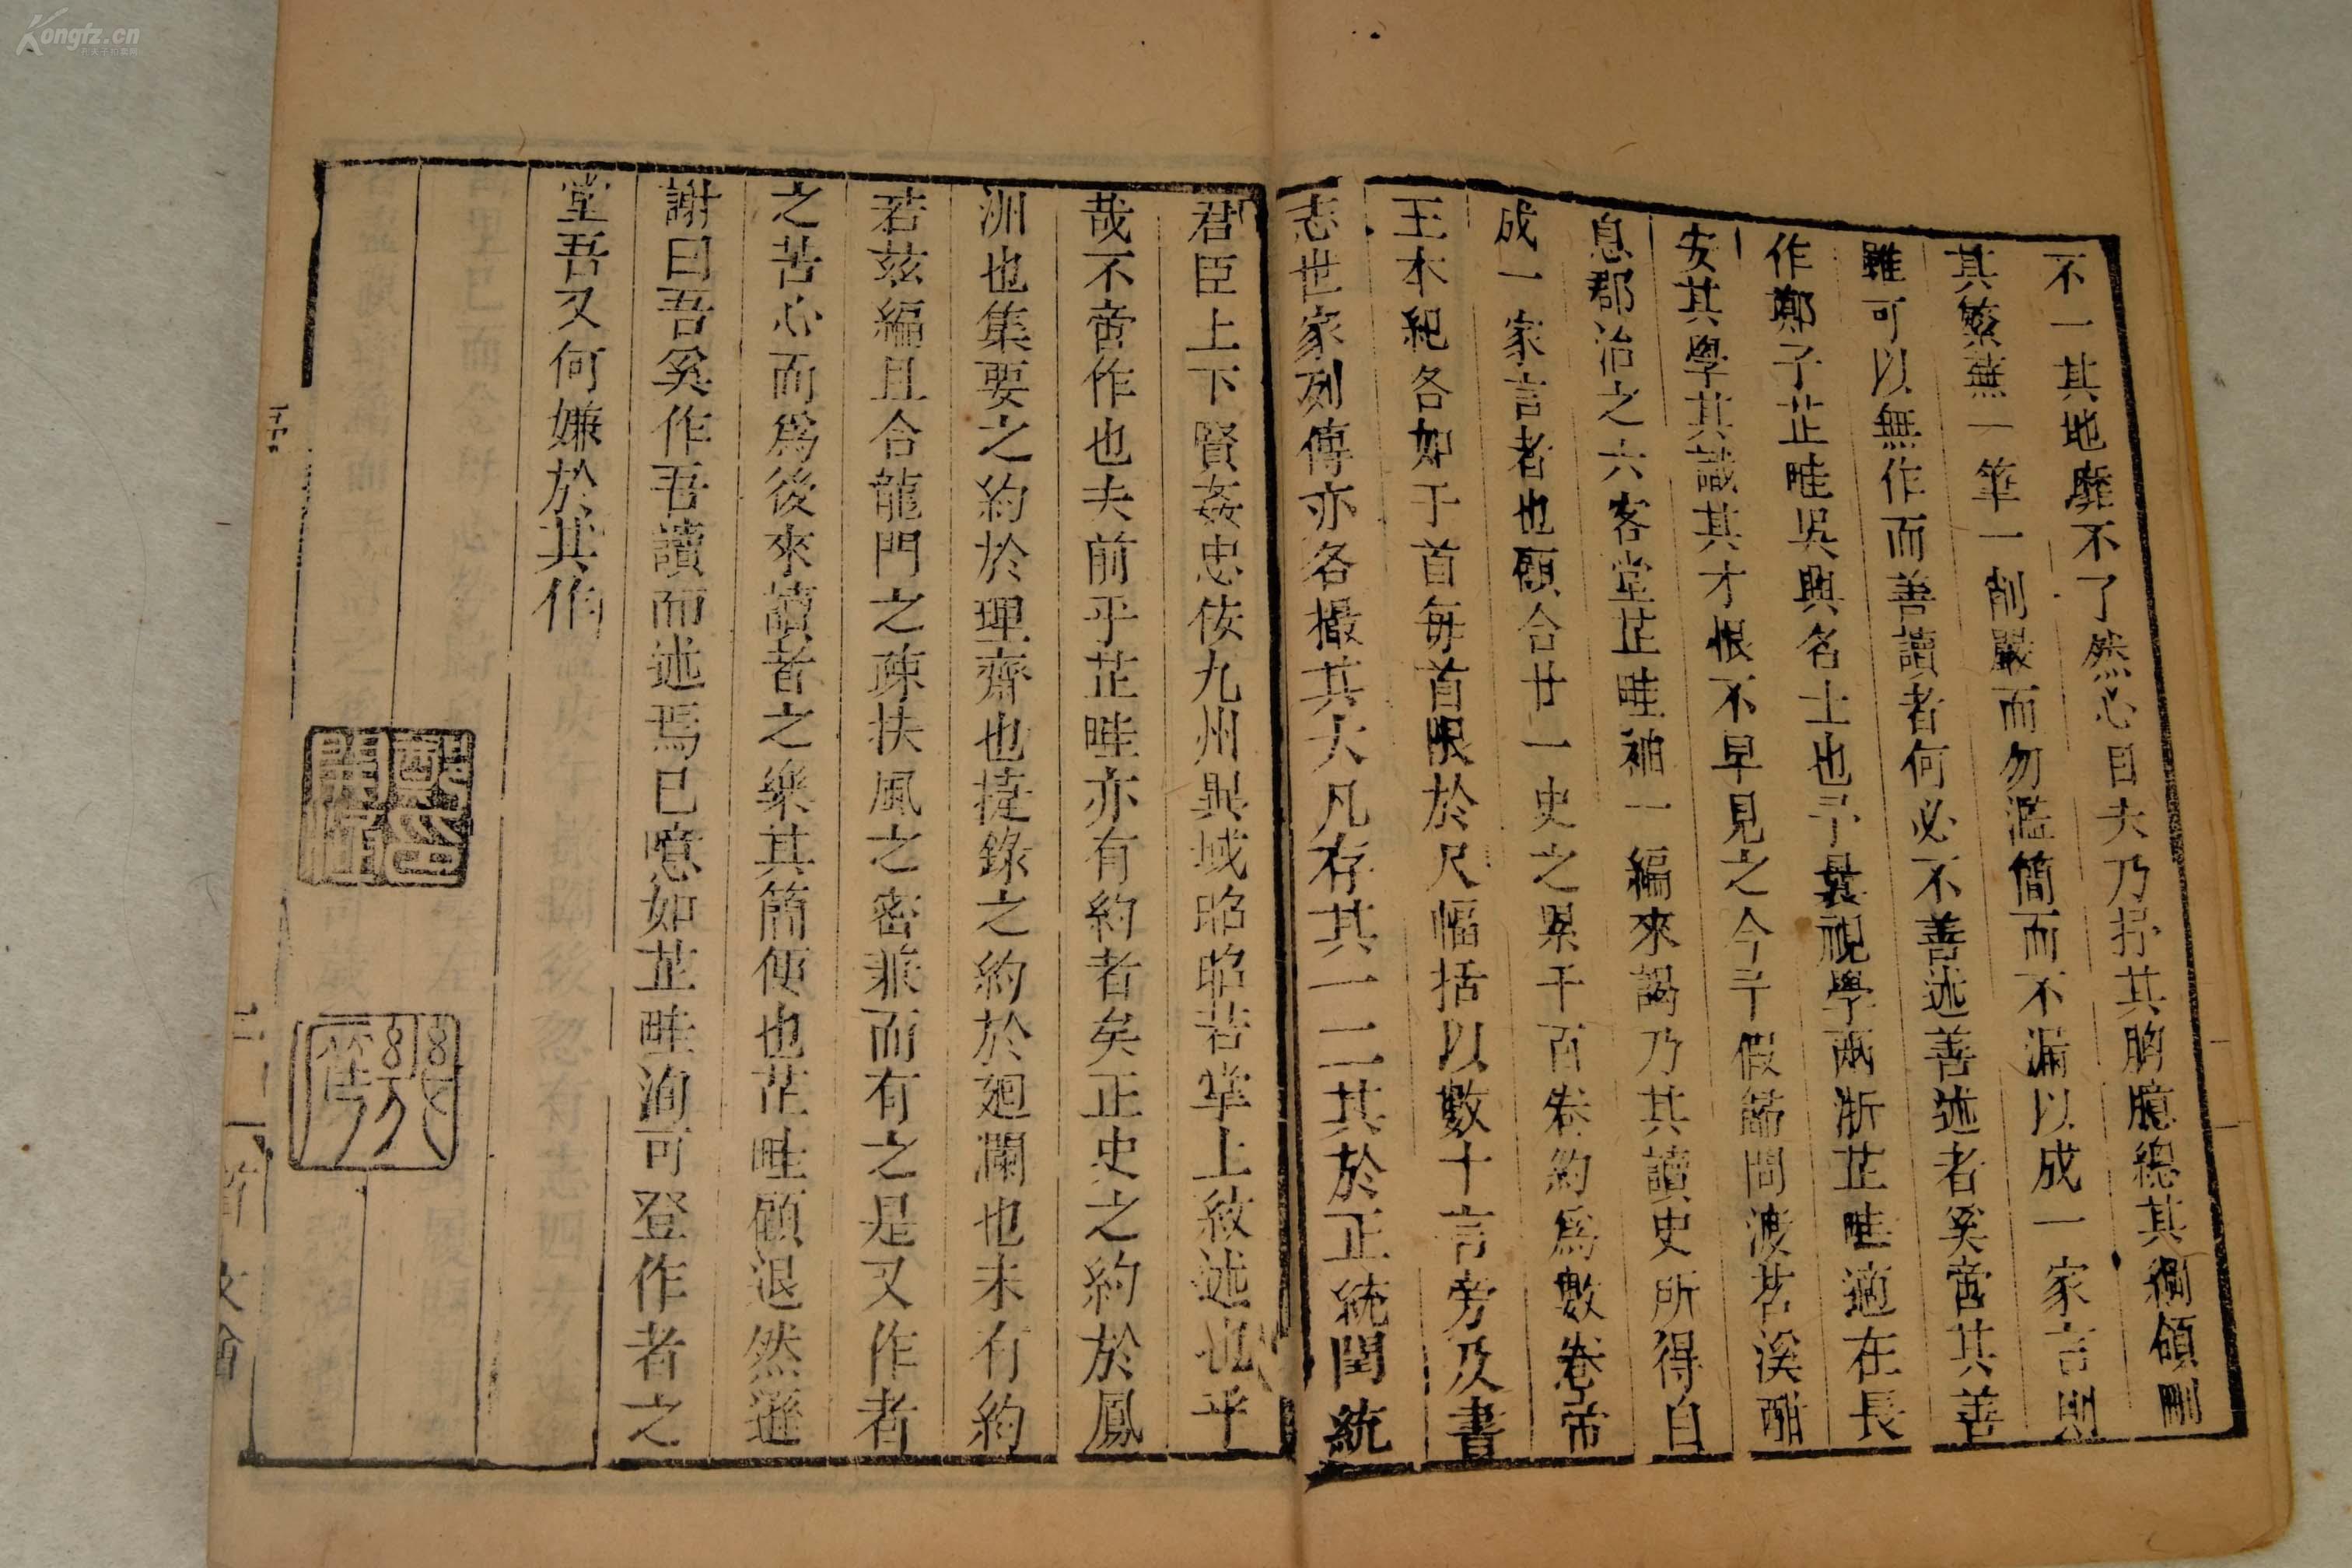 不一其地靡不了然心目夫乃抒其胸臆總其綱領刪
其繁蕪一筆一削嚴而勿濫簡而不漏以成一家言則
雖可以無作而善讀者何必不善述善述者奚啻其善
作鄭子芷畦吳興名士也予曩視學兩浙芷畦適在長
安其學其識其才恨不早見之今年假節問渡苕溪酣
息郡治之六客堂芷畦袖一編來謁乃其讀史所得自
成一家言者也顧合廿一史之累千百卷約為數卷帝
王本紀各如干首每首限於尺幅括以數十言旁及書
志世家列傳亦各撮其大凡存其一二其於正統閏統
君臣上下賢姦忠佞九州異域昭昭若掌上紋述也乎
哉不啻作也夫前乎芷畦亦有約者矣正史之約於鳳
洲也集要之約於理齋也捷錄之約於迴瀾也未有約
若茲編且合龍門之疎扶風之密兼而有之是又作者
之苦心而為後來讀者之樂其簡便也芷畦顧退然遜
謝曰吾奚作吾讀而述焉已噫如芷畦洵可登作者之
堂吾又何嫌於其作
Kongfz.cn